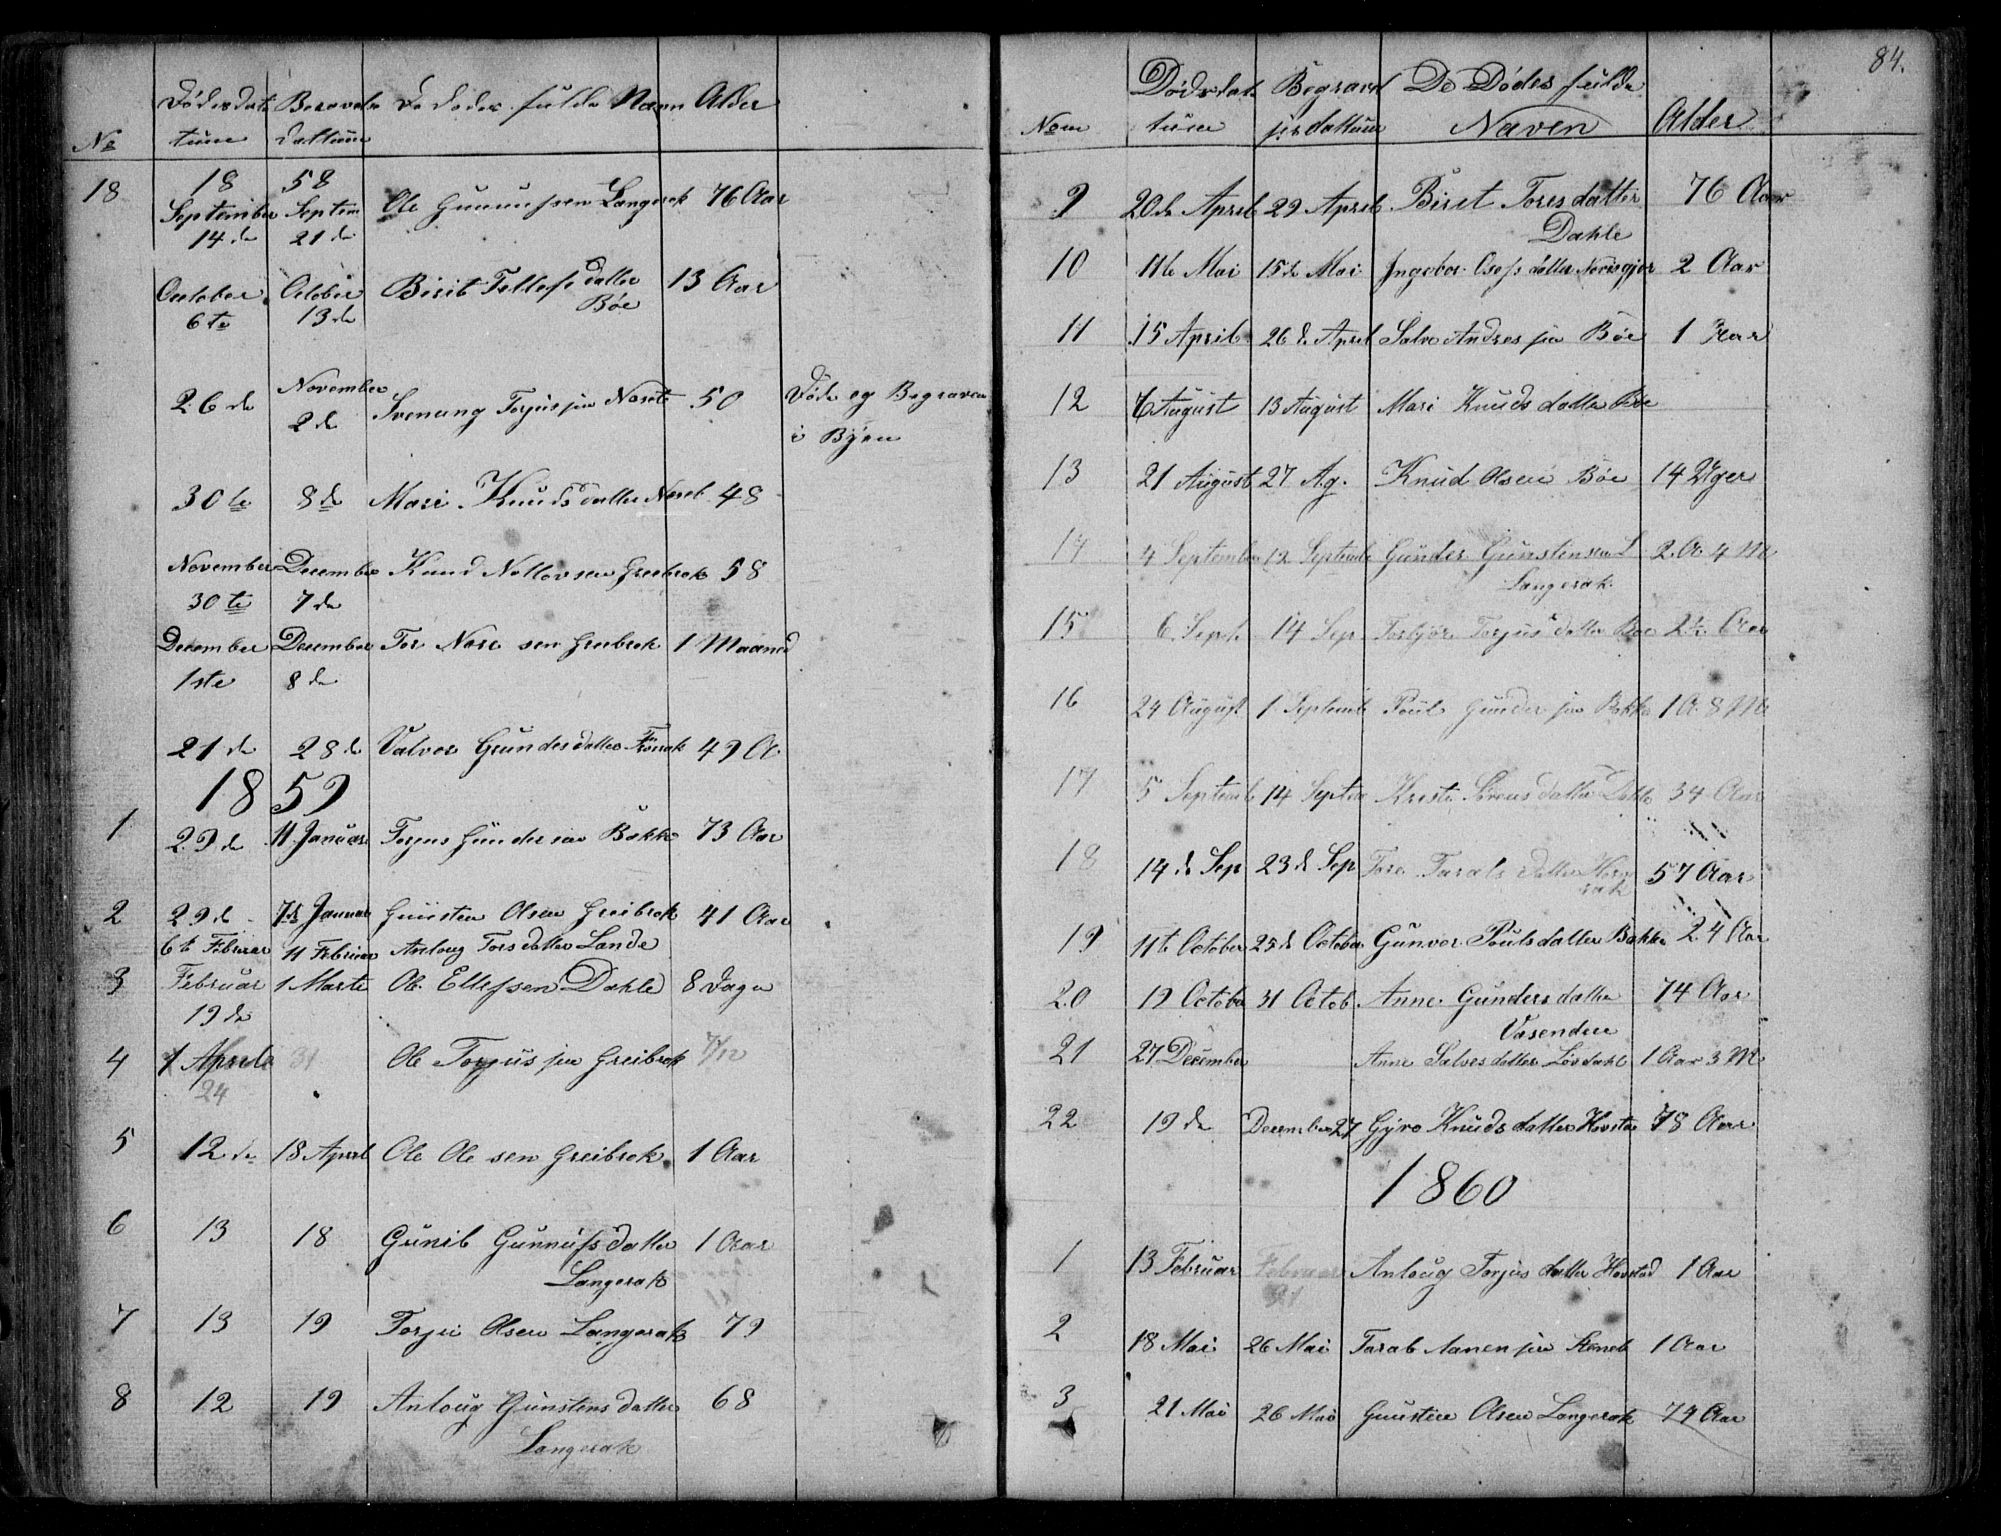 Dödsdat Begravels De Dödes fulde Navn Alder
No tum Dattum
18 18 58
September Septem Ole Gunnufsen Langerak 76 Aar
14 de 21 de
October October Birit Tellefs datter 13 Aar
6 te 13 de Böe
26 de November Svenung Torjus sen 50 Döde og Begraven
2 de i Byen
30 te 8 de Mari Knuds datter 48
November December Knud Nottovsen Greibrok 58
30 te 7 de
December December Tor sen Greibrok 1 Maaned
1ste 8 de
21 de 28 de Valvor Gunders datter 49 A
1859
1 29 de 11 Januar Torjus Gündersen Bakke 73 Aar
2 29 de 7de Januar Günsten Olsen Greibrok 41 Aar
6te Februar 11 Februar Anlaug Tors datter Lande
3 Februar 1 Marts Ole Ellefsen Dahle 8 Dage
19 de
4 1 Aprele 31 Ole Torjus sen Greibrok 7/12
24
5 12 de 18 April Ole Ole sen Greibrok 1 Aar
6 13 18 Günil Gunnufs datter 1 Aar
Langerak
7 13 19 Torju Olsen Langerak 79
8 12 19 Anloug Gunstens datter 68
Langerak
84.
Dödsdat Begravel De Dödes fulde
Nom tum ses dattum Naven Alder
9 20de April 29 April Biret Tores datter 76 Aar
Dahle
10 11te Mai 15de Mai Ingebor Osofs datter 2 Aar
11 15 April 26 de April Salve Andres sen Böe 1 Aar
12 6 August 13 August Mari Knuds datter Böe
13 21 August 27 Ag. Knud Olsen Böe 14 Uger
14 4 September 12 Septemb Günder Günstensen L 2 A 4 M
Langerak
15 6 Sept. 14 Sep Torbjör Torjus datter Böe 2½ Aar
16 24 August 1 Septemb Poul Gunder sen Bakke 1 A. 8 M
17 5 Septemb 14 Septem Kristi Sörens datter Dahle 34 Aar
18 14 de Sep 23 de Sep Tore Taralds datter 57 Aar
19 11te October 25de October Gunvor Pouls datter Bakke 24 Aar
20 19 October 31 Octob. Anne Gunders datter 74 Aar
Vasenden
21 27 December Anne Salves datter Lövdahl 1 Aar 3 M
22 19 de December 27 Gyro Knuds datter Hovsta 78 Aar
1860
1 13 Februar Februar Anloug Torjus datter Hovstad 1 Aar
21
2 18 Mai 26 Mai Taral Aanen sen 1 Aar
3 21 Mai 26 Mai Gunsten Olsen Langerak 74 Aar